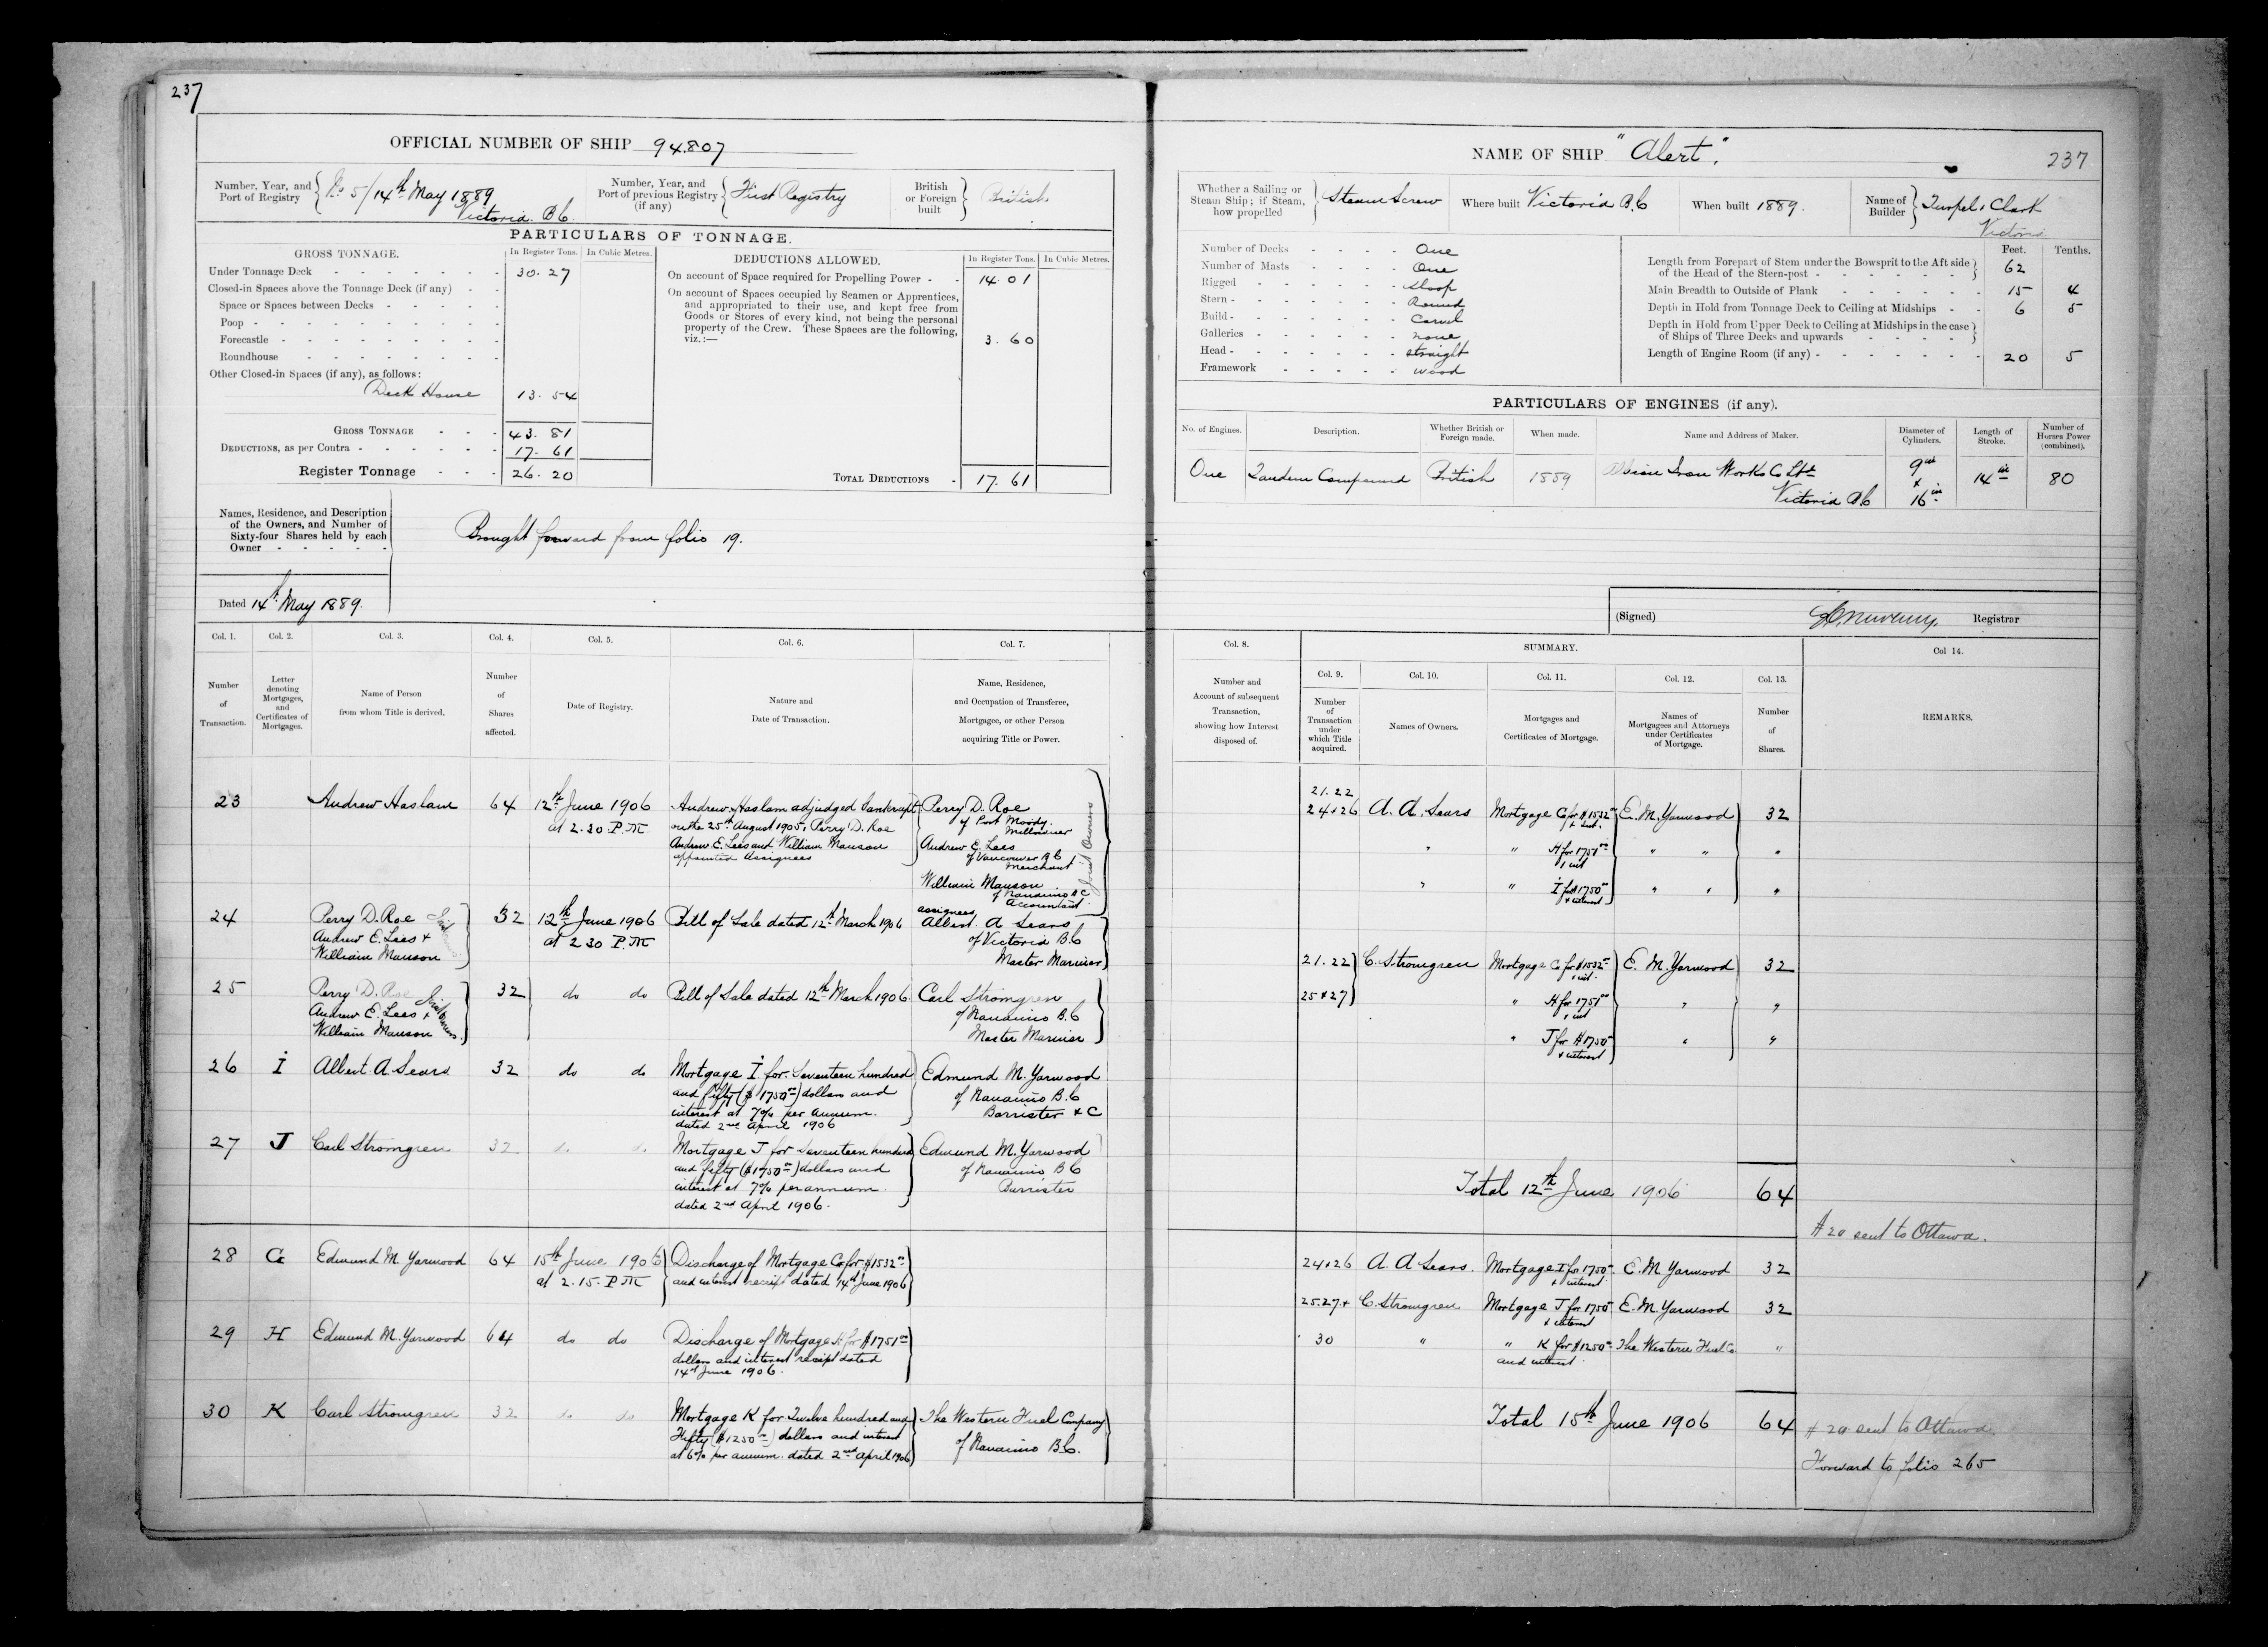 237
OFFICIAL NUMBER OF SHIP 94.807
Number, Year, and Port of Registry No 5/14th May 1889 Victoria. B C
Number, Year, and Port of previous Registry (if any) First Registry
British or Foreign built British
PARTICULARS OF TONNAGE.
GROSS TONNAGE. In Register Tons. In Cubic Metres.
Under Tonnage Deck 30. 27
Closed-in Spaces above the Tonnage Deck (if any)
Space or Spaces between Decks
Poop
Forecastle
Roundhouse
Other Closed-in Spaces (if any), as follows:
Deck House 13. 54
GROSS TONNAGE 43. 81
DEDUCTIONS, as per Contra 17. 61
Register Tonnage 26. 20
DEDUCTIONS ALLOWED. In Register Tons. In Cubic Metres.
On account of Space required for Propelling Power 14 01
On account of Spaces occupied by Seamen or Apprentices,
and appropriated to their use, and kept free from
Goods or Stores of every kind, not being the personal
property of the Crew. These Spaces are the following,
viz.:— 3. 60
TOTAL DEDUCTIONS 17. 61
Names, Residence, and Description
of the Owners, and Number of
Sixty-four Shares held by each
Owner
Brought forward from folio 19.
Dated 14th May 1889.
Col. 1. Col. 2. Col. 3. Col. 4. Col. 5. Col. 6. Col. 7.
Number of Transaction.
Letter denoting Mortgages, and Certificates of Mortgages.
Name of Person from whom Title is derived.
Number of Shares affected.
Date of Registry.
Nature and Date of Transaction.
Name, Residence, and Occupation of Transferee, Mortgagee, or other Person acquiring Title or Power.
23 Andrew Haslam 64 12th June 1906 at 2.30 P.M
Andrew Haslam adjudged bankrupt
on the 25th August 1905, Perry D. Roe
Andrew E. Lees and William Manson
appointed Assignees
Perry D. Roe
of Port Moody.
Millowner
Andrew E. Lees
of Vancouver B C
Merchant
William Manson
of Nanaimo B C
Accountant
assignees
Joint Owners
24 Perry D. Roe
Andrew E. Lees +
William Manson
Joint Owners
32 12th June 1906 at 2 30 P.M
Bill of Sale dated 12th March 1906
Albert A Sears
of Victoria B.C
Master Mariner
25 Perry D. Roe
Andrew E. Lees +
William Manson
Joint Owners.
32 do do
Bill of Sale dated 12th March 1906.
Carl Stromgren
of Nanaimo B.C
Master Mariner
26 I Albert A. Sears 32 do do
Mortgage I for Seventeen hundred
and fifty ($ 1750 00) dollars and
interest at 7% per annum.
dated 2nd April 1906
Edmund M. Yarwood
of Nanaimo B.C
Barrister &C
27 J Carl Stromgren 32 do do
Mortgage J for Seventeen hundred
and fifty ($1750 00) dollars and
interest at 7% per annum.
dated 2nd April 1906.
Edmund M. Yarwood
of Nanaimo B C
Barrister
28 G Edmund M. Yarwood 64 15th June 1906 at 2.15. P.M
Discharge of Mortgage G for $1532 00
and interest receipt dated 14th June 1906
29 H Edmund M. Yarwood 64 do do
Discharge of Mortgage H for $1751 00
dollars and interest receipt dated
14th June 1906.
30 K Carl Stromgren 32 do do
Mortgage K for Twelve hundred and
Fifty ($1250 00) dollars and interest
at 6% per annum. dated 2nd April 1906
The Western Fuel Company
of Nanaimo B.C.
NAME OF SHIP "Alert". 237
Whether a Sailing or Steam Ship; if Steam, how propelled Steam Screw
Where built Victoria B.C
When built 1889.
Name of Builder Turpel & Clark Victoria
Number of Decks One
Number of Masts One
Rigged Sloop
Stern Round
Build Carvel
Galleries none
Head straight
Framework wood
Feet. Tenths.
Length from Forepart of Stem under the Bowsprit to the Aft side
of the Head of the Stern-post 62
Main Breadth to Outside of Plank 15 4
Depth in Hold from Tonnage Deck to Ceiling at Midships 6 5
Depth in Hold from Upper Deck to Ceiling at Midships in the case
of Ships of Three Decks and upwards
Length of Engine Room (if any) 20 5
PARTICULARS OF ENGINES (if any).
No. of Engines. Description. Whether British or Foreign made. When made. Name and Address of Maker. Diameter of Cylinders. Length of Stroke. Number of Horses Power (combined).
One Tandem Compound British 1889 Albion Iron Works Co Ltd Victoria B C 9 in + 16 in 14 in 80
(Signed) Registrar
Col. 8. SUMMARY. Col 14.
Col. 9. Col. 10. Col. 11. Col. 12. Col. 13.
Number and Account of subsequent Transaction, showing how Interest disposed of.
Number of Transaction under which Title acquired.
Names of Owners.
Mortgages and Certificates of Mortgage.
Names of Mortgagees and Attorneys under Certificates of Mortgage.
Number of Shares.
REMARKS.
21. 22
24 & 26 A. A. Sears Mortgage G for $1532 00 & int. E. M. Yarwood 32
" " H for 1751 00 & int " " "
" " I for $1750 00 & interest " " "
21. 22 C. Stromgren Mortgage G for $1532 00 & int. E. M. Yarwood 32
25 & 27 " H for 1751 00 & int " "
" J for $1750 & interest " "
Total 12th June 1906 64
A 20 sent to Ottawa.
24 & 26 A A Sears. Mortgage I for 1750 00 & interest E. M Yarwood 32
25. 27 & C. Stromgren Mortgage J for 1750 & interest E. M. Yarwood 32
30 " " K for $1250 00 and interest The Western Fuel Co "
Total 15th June 1906 64
A 20 sent to Ottawa.
Forward to folio 265